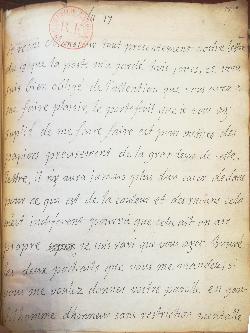 du 17
Je reçois Monsieur tout presentement votre lettre
du que la poste ma gardé huit jours, et vous
suis bien obligé de l'attention que vous avez a
me faire plaisir, le portefeuil que je vous ay
de me faire faire est pour mettre des
papiers precisement de la grandeur de cette
lettre, il n'y aura jamais plus d'un cayer dedans
pour ce qui est de la couleur et des cela
mest indifferent pourvu que cela ait un air
propre je suis ravi que vous ayez trouvé
les deux portraits que vous me mandez, si
vous me voulez donner votre parolle en
d'homme d'honneur sans restriction mentalle